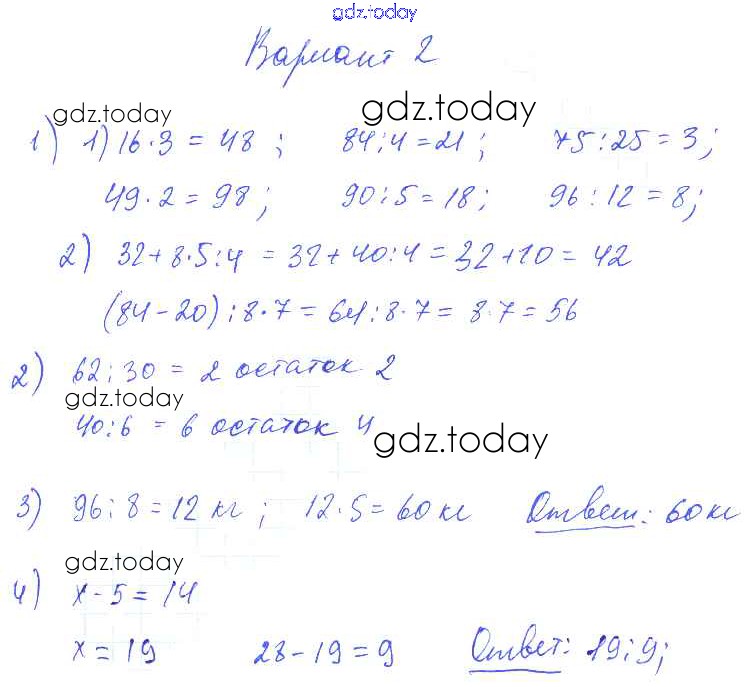 gdz.today
Вариант 2
gdz.today gdz.today
1) 1) 16·3 = 48 ; 84:4=21 ; 75:25=3;
49·2=98; 90:5=18; 96:12=8;
2) 32+8·5:4 = 32+40:4=32+10=42
(84-20):8·7=64:8·7=8·7=56
2) 62:30 = 2 остаток 2
gdz.today
40:6 = 6 остаток 4
gdz.today
3) 96:8=12 кг ; 12·5=60 кг Ответ: 60 кг
gdz.today
4) x-5=14
x=19 28-19=9 Ответ: 19;9;